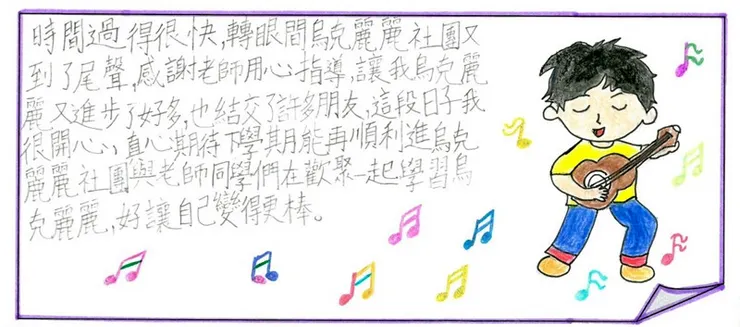 時間過得很快,轉眼間烏克麗麗社團又
到了尾聲,感謝老師用心指導,讓我烏克麗
麗又進步了好多,也結交了許多朋友,這段日子我
很開心,真心期待下學期能再順利進烏克
麗麗社團與老師同學們在歡聚一起學習烏
克麗麗,好讓自己變得更棒。